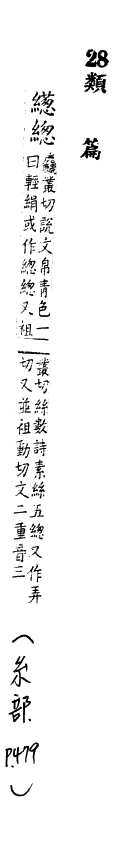 28 類篇
繱總
麤叢切說文帛青色一
曰輕絹或作總總又祖
叢切絲數詩素絲五總又作弄
切又並祖動切文二重音三
(糸部 P.479)